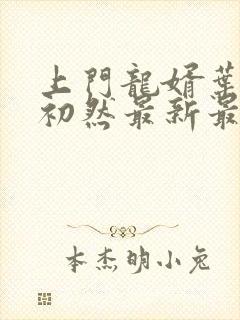 上門龍婿葉
初然最新最
本杰明小兔